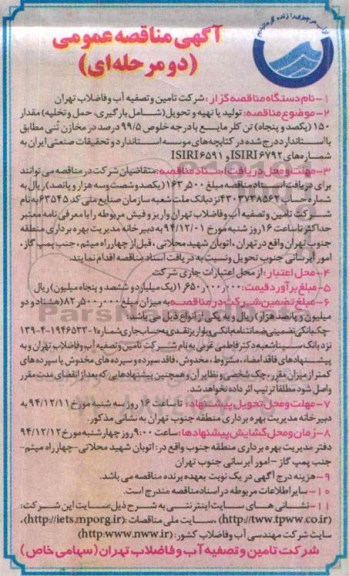 آگهی مناقصه عمومی
(دو مرحله‌ای)
۱- نام دستگاه مناقصه گزار: شرکت تامین و تصفیه آب و فاضلاب تهران
۲- موضوع مناقصه: تولید یا تهیه و تحویل (شامل بارگیری، حمل و تخلیه) مقدار
۱۵۰ (یکصد و پنجاه) تن کلر مایع با درجه خلوص ۹۹/۵ درصد در مخازن تُنی مطابق
با استاندارد درج شده در کتابچه‌های موسسه استاندارد و تحقیقات صنعتی ایران به
شماره‌های ISIRI ۶۷۹۲ و ISIRI ۶۵۹۱
۳- مهلت و محل دریافت اسناد مناقصه: متقاضیان شرکت در مناقصه می توانند
برای دریافت اسناد مناقصه مبلغ ۱۶۳٫۵۰۰ (یکصد و شصت و سه هزار و پانصد) ریال به
شماره حساب ۴۳۰۳۷۳۸۵۶۲ نزد بانک ملت شعبه سازمان صنایع ملی کد ۶۳۵۴۵ به نام
شرکت تامین و تصفیه آب و فاضلاب تهران واریز و فیش مربوطه را با معرفی نامه معتبر
حداکثر تا ساعت ۱۶ روز شنبه مورخ ۹۴/۱۲/۰۱ به دبیرخانه مدیریت بهره برداری منطقه
جنوب تهران واقع در تهران، اتوبان شهید محلاتی، قبل از چهارراه میثم، جنب پمپ گاز،
امور آبرسانی جنوب تحویل و نسبت به دریافت اسناد مناقصه اقدام نمایند.
۴- محل اعتبار: از محل اعتبارات جاری شرکت
۵- مبلغ برآورد قیمت: ۱٫۶۵۰٫۰۰۰٫۰۰۰ (یک میلیارد و ششصد و پنجاه میلیون) ریال
۶- مبلغ تضمین شرکت در مناقصه: به میزان مبلغ ۸۲٫۵۰۰٫۰۰۰ (هشتاد و دو
میلیون و پانصد هزار) ریال و به یکی از انواع ذیل می باشد:
چک بانکی تضمینی، ضمانتنامه بانکی و یا واریز نقدی به حساب جاری شماره ۱-۱۹۴۶۵۳۳-۴-۱۳۹
نزد بانک سینا شعبه دکتر فاطمی غربی به نام شرکت تامین و تصفیه آب و فاضلاب تهران و به
پیشنهادهای فاقد امضاء، مشروط، مخدوش، فاقد سپرده و سپرده های مخدوش یا سپرده های
کمتر از میزان مقرر، چک شخصی و نظایر آن و همچنین پیشنهادهایی که بعد از انقضای مدت مقرر
واصل شود مطلقا ترتیب اثر داده نخواهد شد.
۷- مهلت و محل تحویل پیشنهاد: تا ساعت ۱۶ روز سه شنبه مورخ ۹۴/۱۲/۱۱ به
دبیرخانه مدیریت بهره برداری منطقه جنوب تهران به نشانی مذکور.
۸- زمان و محل گشایش پیشنهادها: ساعت ۹:۰۰ روز چهارشنبه مورخ ۹۴/۱۲/۱۲
دفتر مدیریت بهره برداری منطقه جنوب واقع در: اتوبان شهید محلاتی-چهارراه میثم-
جنب پمپ گاز- امور آبرسانی جنوب تهران
۹- هزینه درج آگهی در یک نوبت بعهده برنده مناقصه می باشد.
۱۰- سایر اطلاعات مربوطه در اسناد مناقصه مندرج است.
۱۱- نشانی های سایت اینترنتی به شرح ذیل: سایت این شرکت:
(http://tww.tpww.co.ir)، سایت ملی مناقصات: (http://iets.mporg.ir)،
سایت شرکت مهندسی آب و فاضلاب کشور: (http:www.nww.ir)
شرکت تامین و تصفیه آب و فاضلاب تهران (سهامی خاص)